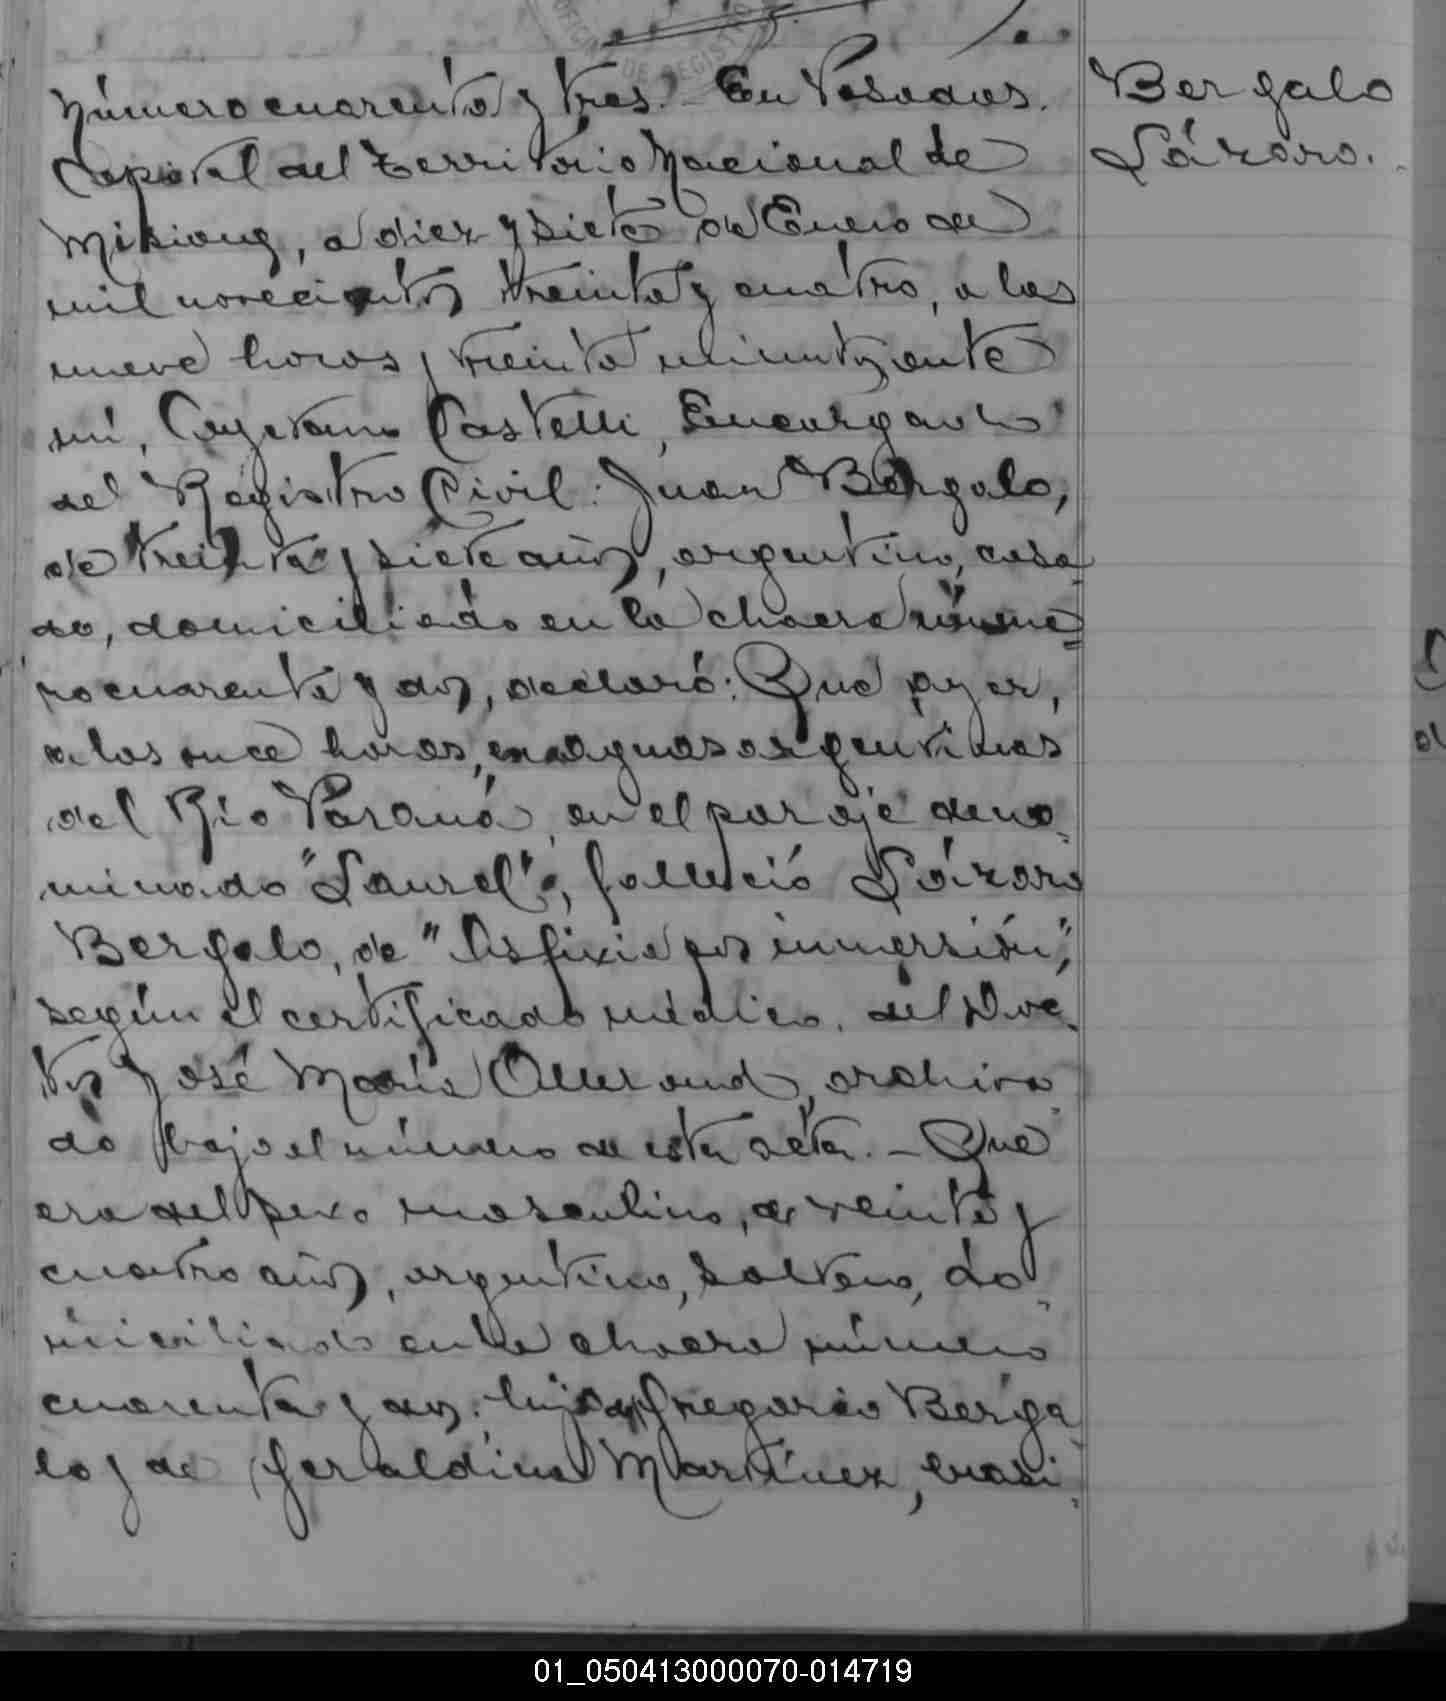 Bergalo
Lázaro.
Número cuarenta y tres.- En Posadas.
Capital del Territorio Nacional de
Misiones, a diez y siete de Enero de
mil novecientos treinta y cuatro, a las
nueve horas y treinta minutos, ante
mí, Cayetano Castelli, Encargado
del Registro Civil: Juan Bergalo,
de treinta y siete años, argentino, casa
do, domiciliado en la chacra núme=
ro cuarenta y dos, declaró: Que ayer,
a las once horas, en aguas argentinas
del Río Paraná, en el paraje deno-
minado "Laurel", falleció Lázaro
Bergalo, de "Asfixia por inmersión",
según el certificado médico, del Doc-
tor José María Allerand, archiva-
do bajo el número de esta acta.- Que
era del sexo masculino, de veinte y
cuatro años, argentino, soltero, do-
miciliado en la chacra número
cuarenta y dos: hijo de Gregorio Berga
lo y de Geraldina Martínez, brasi-
OFICINA DE REGISTRO
01_050413000070-014719